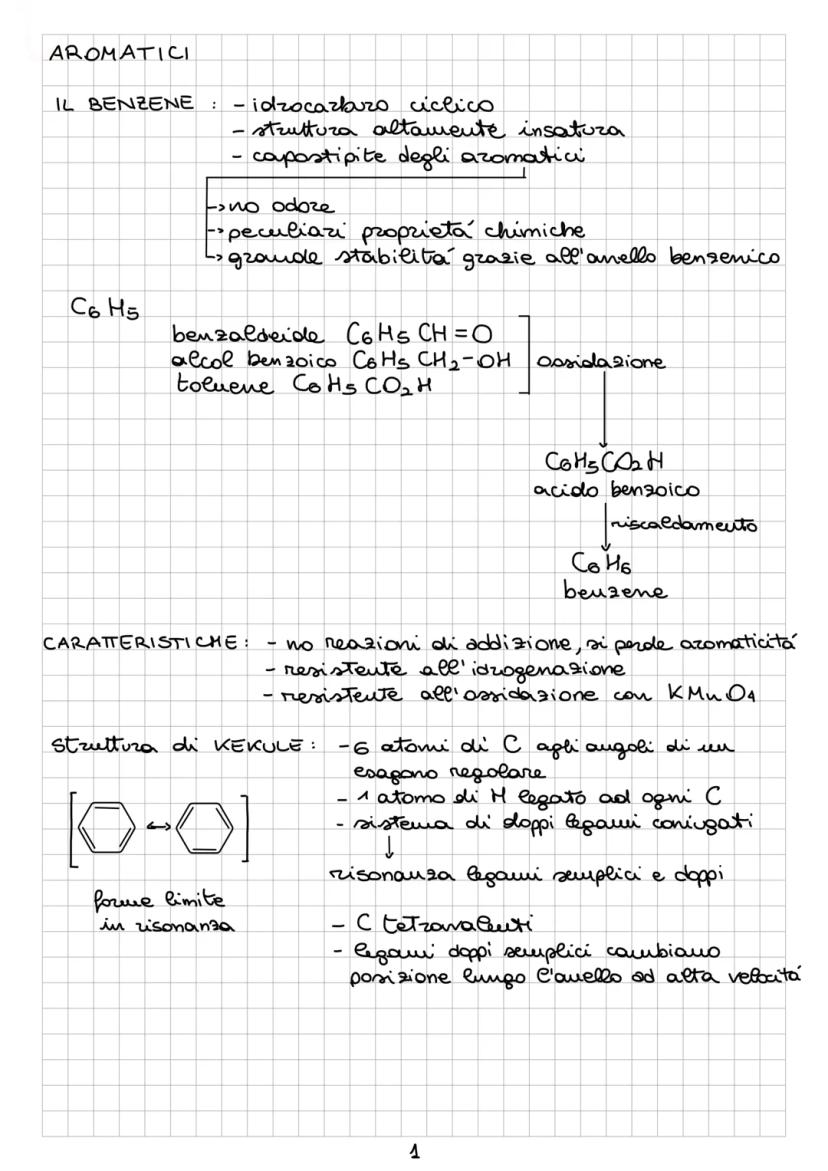 AROMATICI
IL BENZENE : - idrocarburo ciclico
- struttura altamente insatura
- capostipite degli aromatici
-> no odore
-> peculiari proprietá chimiche
-> grande stabilitá grazie all'anello benzenico
C6 H5
benzaldeide C6H5 CH=O
alcol benzoico C6H5 CH2-OH ossidazione
toluene C6H5 CO2H
C6H5CO2H
acido benzoico
riscaldamento
C6H6
benzene
CARATTERISTICHE: - no reazioni di addizione, si perde aromaticitá
- resistente all'idrogenazione
- resistente all'ossidazione con KMnO4
Struttura di KEKULE: - 6 atomi di C agli angoli di un
esagono regolare
- 1 atomo di H legato ad ogni C
- sistema di doppi legami coniugati
↓
risonanza legami semplici e doppi
forme limite
in risonanza
- C tetravalenti
- legami doppi semplici cambiano
posizione lungo l'anello ad alta velocitá
1